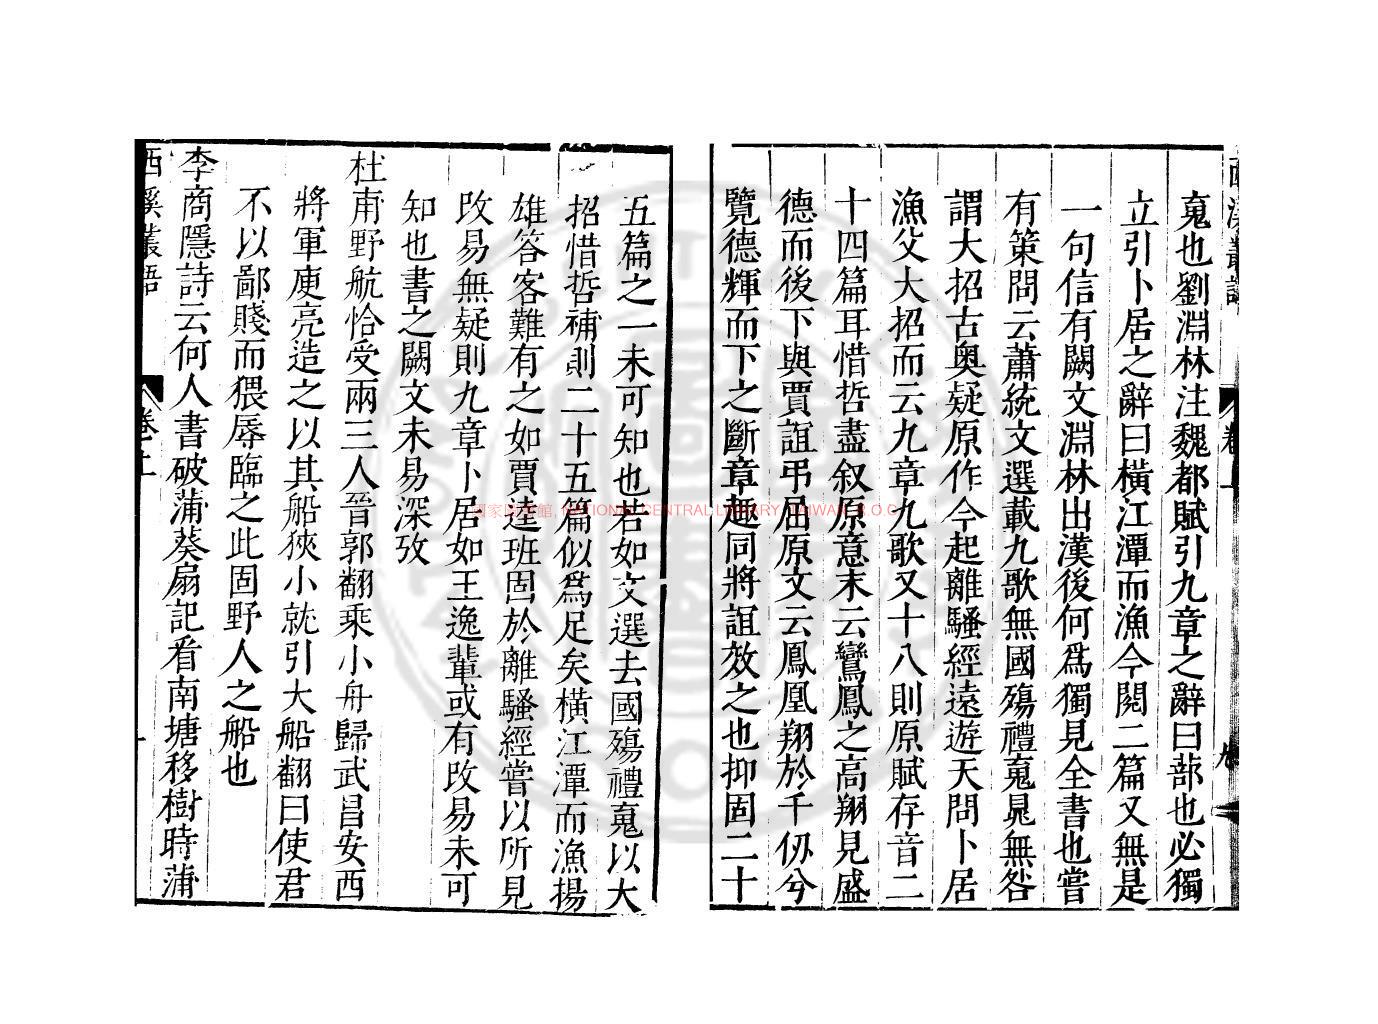 䰟也劉淵林注魏都賦引九章之辭曰蔀也必獨
立引卜居之辭曰橫江潭而漁今閱二篇又無是
一句信有闕文淵林出漢後何爲獨見全書也嘗
有策問云蕭統文選載九歌無國殤禮䰟晁無咎
謂大招古奥疑原作今起離騷經遠遊天問卜居
漁父大招而云九章九歌又十八則原賦存音二
十四篇耳惜哲盡叙原意末云鸞鳳之高翔見盛
德而後下與賈誼弔屈原文云鳳凰翔於千仭兮
覽德輝而下之斷章趣同將誼效之也抑固二十
五篇之一未可知也若如文選去國殤禮䰟以大
招惜哲補則二十五篇似爲足矣橫江潭而漁揚
雄答客難有之如賈逵班固於離騷經嘗以所見
改易無疑則九章卜居如王逸輩或有改易未可
知也書之闕文未易深攷
杜甫野航恰受兩三人晉郭翻乘小舟歸武昌安西
將軍庾亮造之以其船狹小就引大船翻曰使君
不以鄙賤而猥辱臨之此固野人之船也
李商隱詩云何人書破蒲葵扇記看南塘移樹時蒲
西溪叢語
卷上
國家圖書館, NATIONAL CENTRAL LIBRARY, TAIWAN, R.O.C